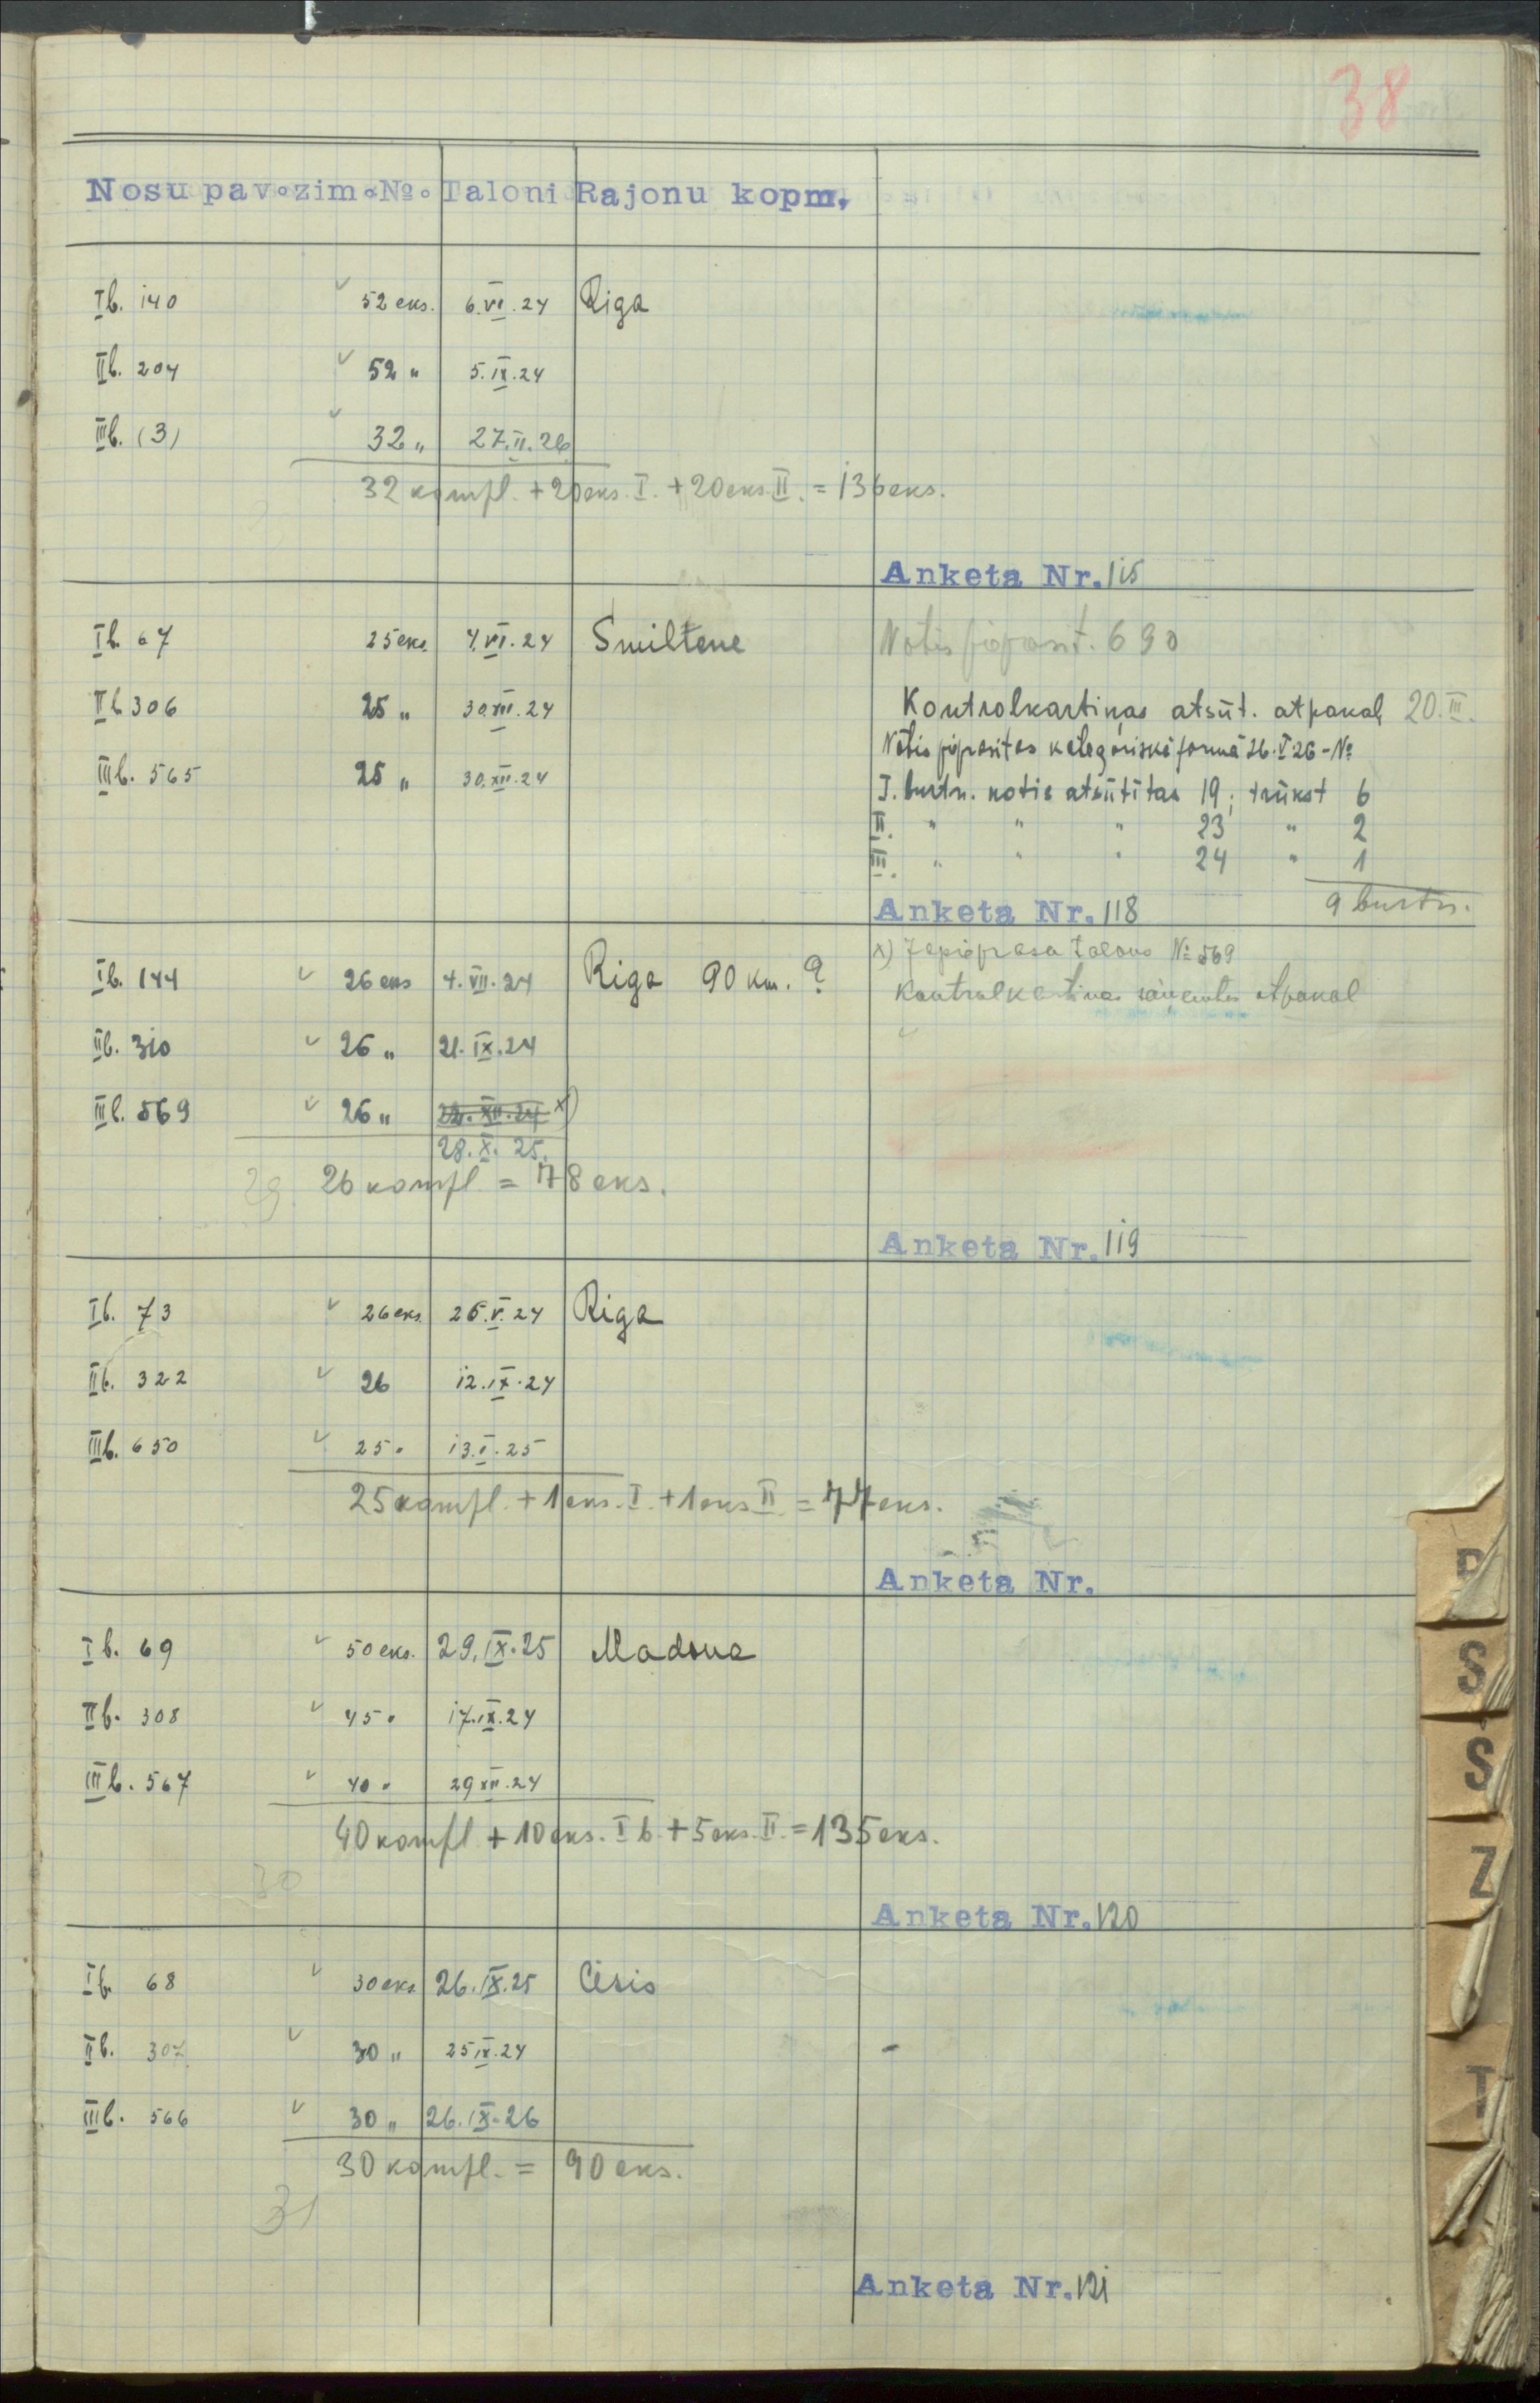 38
Nosu pav. zim. №. Taloni Rajonu kopm.
I b. 140 ✓ 52 eks. 6.VI.24 Riga
II b. 204 ✓ 52 " 5.IX.24
III b. (3) ✓ 32 " 27.II.26
32 kompl. + 20 eks. I. + 20 eks. II. = 136 eks.
Anketa Nr. 115
I b. 67 25 eks. 7.VI.24 Smiltene Notis pieprasīt. 690
II b. 306 25 " 30.XII.24 Kontrolkartiņas atsūt. atpakaļ 20.III.
Notis pieprasītas kategoriskā formā 26.I 26 - №
III b. 565 25 " 30.XII.24 I. burtn. notis atsūtītas 19; trūkst 6
II. " " " 23 " 2
III. " " " 24 " 1
Anketa Nr. 118 9 burtn.
x) Jāpieprasa talons № 569
I b. 144 ✓ 26 eks 4.VII.24 Riga 90 km. ? Kontrolkartiņas atpakaļ
II b. 310 ✓ 26 " 21.IX.24
III b. 569 ✓ 26 " 22.XII.24 x)
28.X.25.
29 26 kompl. = 78 eks.
Anketa Nr. 119
I b. 73 ✓ 26 eks. 26.V.24 Riga
II b. 322 ✓ 26 12.IX.24
III b. 650 ✓ 25 " 13.I.25
25 kompl. + 1 eks. I. + 1 eks II = 77 eks.
Anketa Nr.
I b. 69 ✓ 50 eks. 29.IX.25 Madona
II b. 308 ✓ 45 " 17.IX.24
III b. 567 ✓ 40 " 29 XII.24
40 kompl. + 10 eks. I b. + 5 eks. II. = 135 eks.
30
Anketa Nr. 120
I b. 68 ✓ 30 eks. 26.IX.25 Cēsis
II b. 307 ✓ 30 " 25 IX.24 -
III b. 566 ✓ 30 " 26.IX.26
30 kompl. = 90 eks.
31
Anketa Nr. 121
S
Š
Z
T